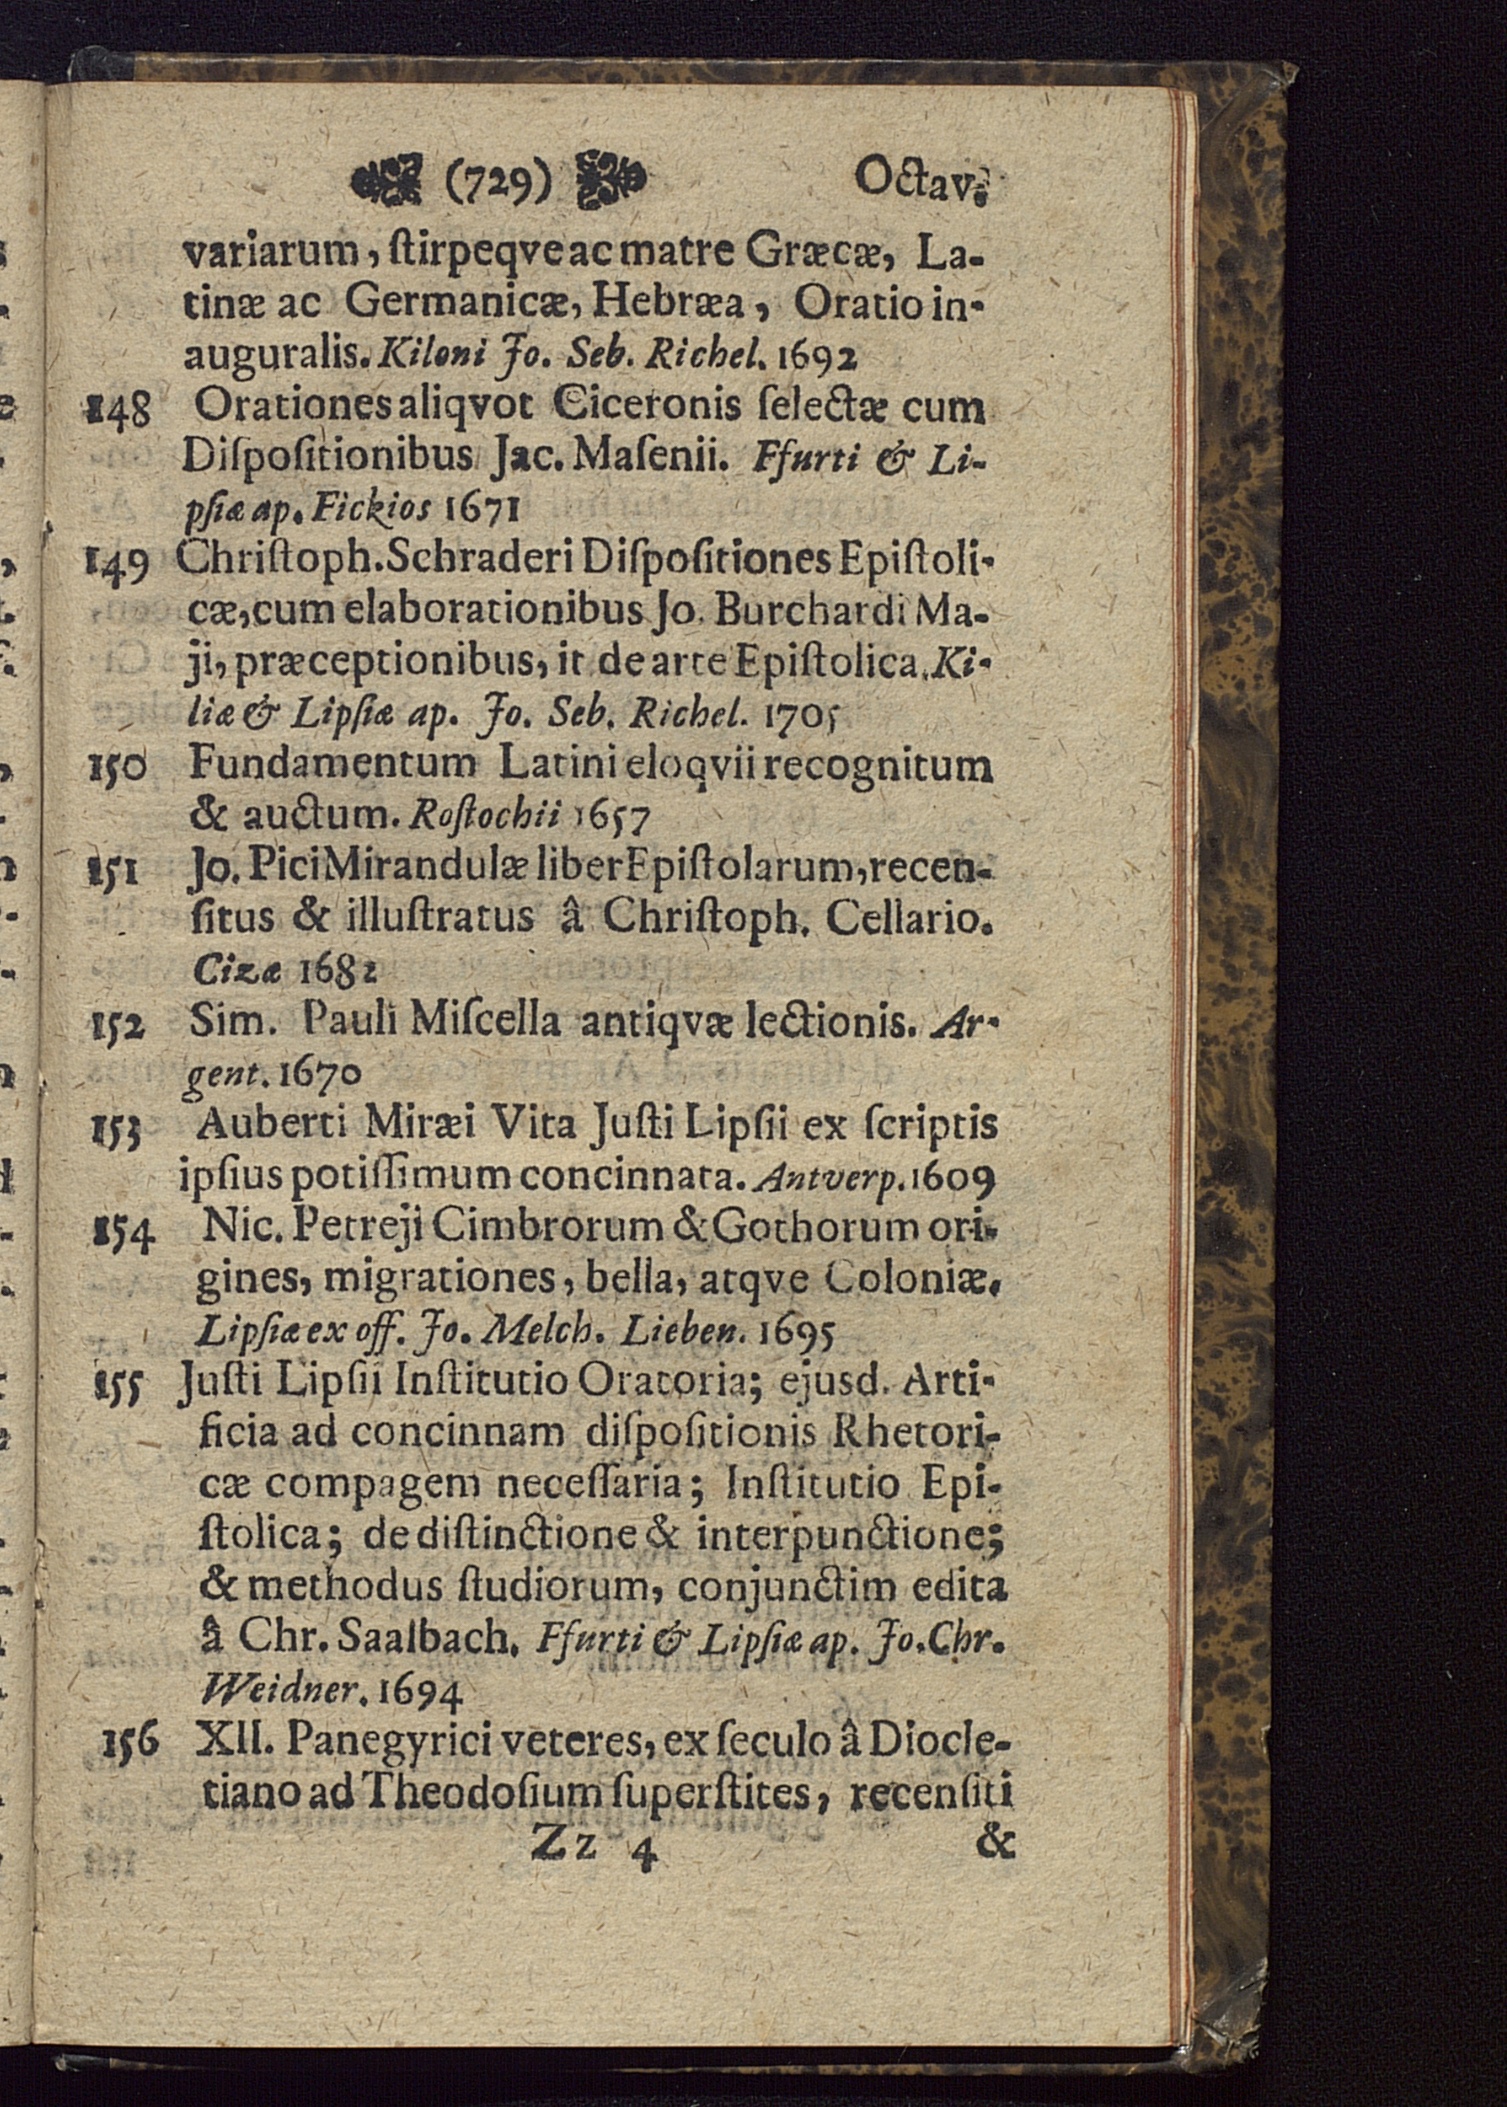 (729) Octav.
variarum, ſtirpeqve ac matre Græcæ, La-
tinæ ac Germanicæ, Hebræa, Oratio in-
auguralis. Kiloni Jo. Seb. Richel. 1692
148 Orationes aliqvot Ciceronis ſelectæ cum
Diſpoſitionibus Jac. Maſenii. Ffurti & Li-
pſiæ ap. Fickios 1671
149 Chriſtoph. Schraderi Diſpoſitiones Epiſtoli-
cæ, cum elaborationibus Jo. Burchardi Ma-
ji, præceptionibus, it de arte Epiſtolica. Ki-
liæ & Lipſiæ ap. Jo. Seb. Richel. 1705
150 Fundamentum Latini eloqvii recognitum
& auctum. Roſtochii 1657
151 Jo. Pici Mirandulæ liber Epiſtolarum, recen-
ſitus & illuſtratus â Chriſtoph. Cellario.
Cizæ 1682
152 Sim. Pauli Miſcella antiqvæ lectionis. Ar-
gent. 1670
153 Auberti Miræi Vita Juſti Lipſii ex ſcriptis
ipſius potiſſimum concinnata. Antverp. 1609
154 Nic. Petreji Cimbrorum & Gothorum ori-
gines, migrationes, bella, atqve Coloniæ.
Lipſiæ ex off. Jo. Melch. Lieben. 1695
155 Juſti Lipſii Inſtitutio Oratoria; ejusd. Arti-
ficia ad concinnam diſpoſitionis Rhetori-
cæ compagem neceſſaria; Inſtitutio Epi-
ſtolica; de diſtinctione & interpunctione;
& methodus ſtudiorum, conjunctim edita
â Chr. Saalbach. Ffurti & Lipſiæ ap. Jo. Chr.
Weidner. 1694
156 XII. Panegyrici veteres, ex ſeculo â Diocle-
tiano ad Theodoſium ſuperſtites, recenſiti
Zz 4 &